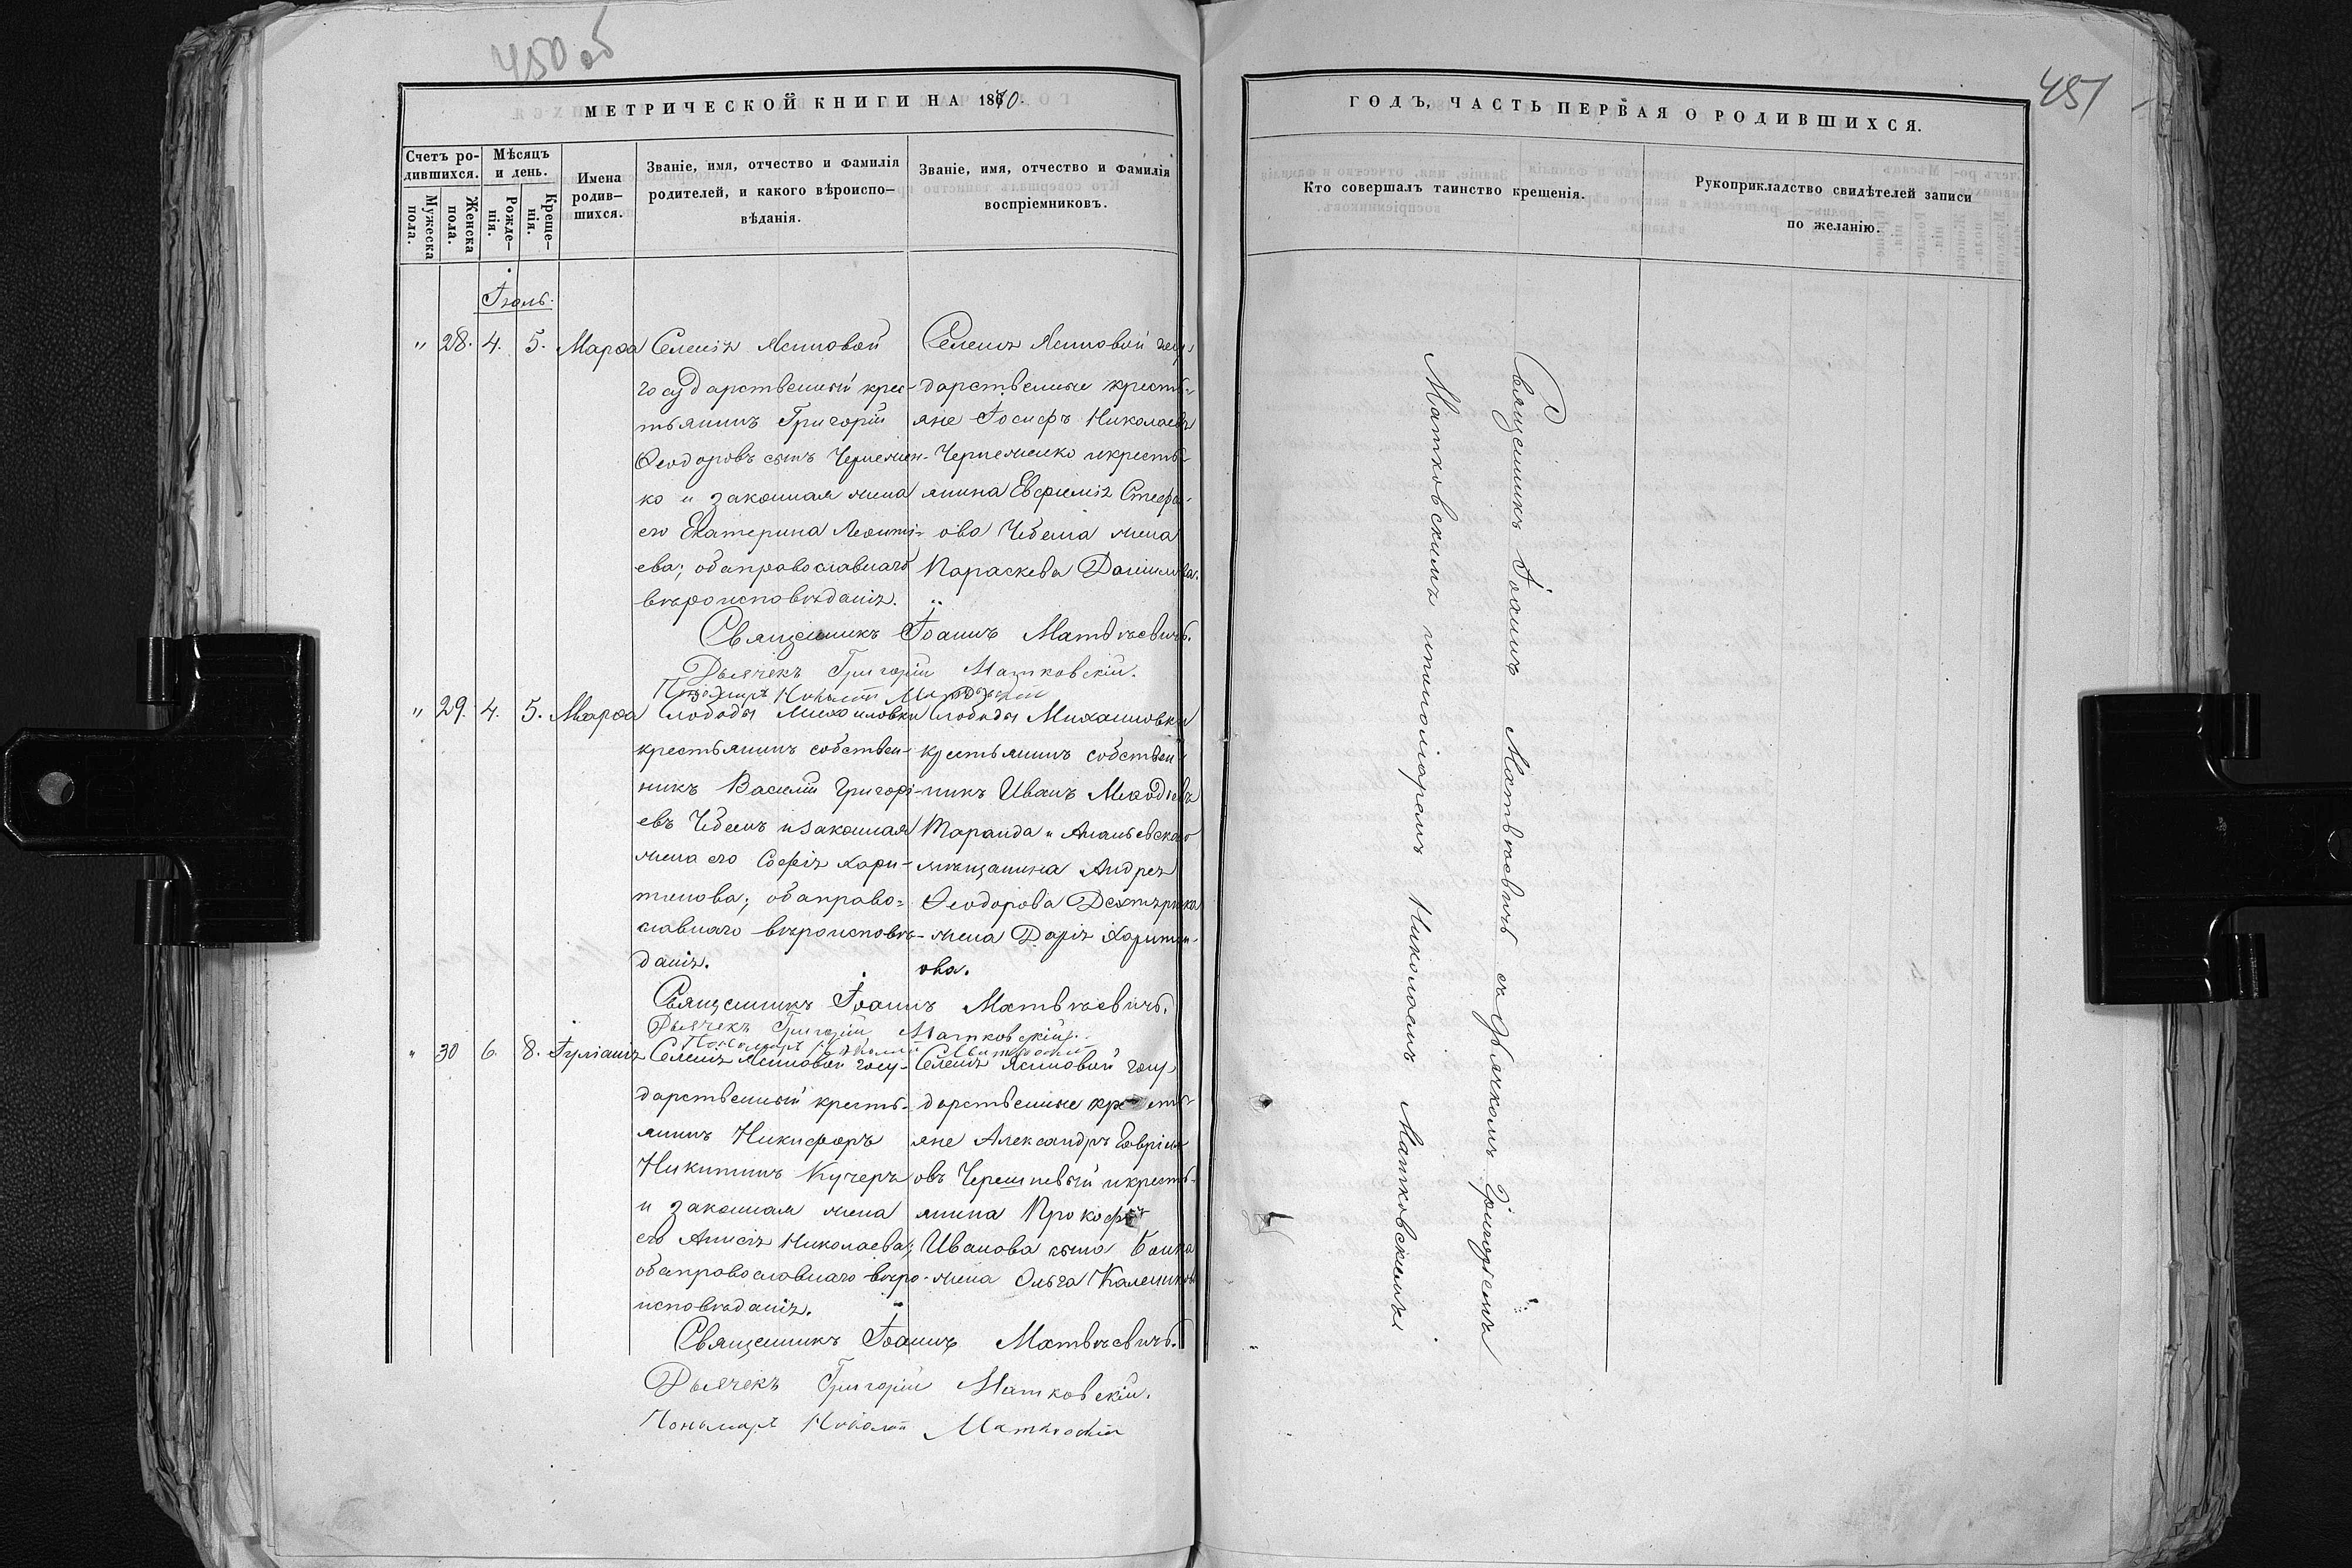 450 об
МЕТРИЧЕСКОЙ КНИГИ НА 1870.
Счетъ ро-
дившихся.
Мужеска
пола.
Женска
пола.
Мѣсяцъ
и день.
Рожде-
нія.
Креще-
нія.
Имена
родив-
шихся.
Званіе, имя, отчество и фамилія
родителей, и какого вѣроиспо-
вѣданія.
Званіе, имя, отчество и фамилія
воспріемниковъ.
Іюль.
" 28. 4. 5. Марѳа
Селенія Ясиновой
государственный крес-
тьянинъ Григорій
Ѳеодоровъ сынъ Чернемен-
ко и законная жена
его Екатерина Леонті-
ева; оба православнаго
вѣроисповѣданія.
Селенія Ясиновой госу-
дарственные кресть-
яне Іосифъ Николаевъ
Чернеменко и кресть-
янина Евфимія Стефа-
ова Чебана жена
Параскева Даніилова.
Священникъ Іоаннъ Матвѣевичъ.
Дьячекъ Григорій Матковскій.
Пономарь Николай Матковскій
" 29. 4. 5. Марѳа
Слободы Михайловки
крестьянинъ собствен-
никъ Василій Григорі-
евъ Чебанъ и законная
жена его Софія Хари-
тонова; оба право-
славнаго вѣроисповѣ-
данія.
Слободы Михайловки
крестьянинъ собствен-
никъ Иванъ Меѳодіевъ
Таранда и Ананьевскаго
мѣщанина Андрея
Ѳеодорова
жена Дарія Харитон-
ова.
Священникъ Іоаннъ Матвѣевичъ.
Дьячекъ Григорій Матковскій.
Пономарь Николай Матковскій
" 30 6. 8. Іуліанія
Селенія Ясиновой госу-
дарственный кресть-
янинъ Никифоръ
Никитинъ Кучеръ
и законная жена
его Анисія Николаева;
оба православнаго вѣро-
исповѣданія.
Селенія Ясиновой госу-
дарственные кресть-
яне Александръ Гавріил-
овъ Черешневый и кресть-
янина Прокофія
Иванова сына
жена Ольга
Священникъ Іоаннъ Матвѣевичъ.
Дьячекъ Григорій Матковскій.
Пономарь Николай Матковскій
451
ГОДЪ, ЧАСТЬ ПЕРВАЯ О РОДИВШИХСЯ.
Кто совершалъ таинство крещенія.
Рукоприкладство свидѣтелей записи
по желанію.
Священникъ Іоаннъ Матвѣевичъ съ дьячкомъ Григоріемъ
Матковскимъ и пономаремъ Николаемъ Матковскимъ.